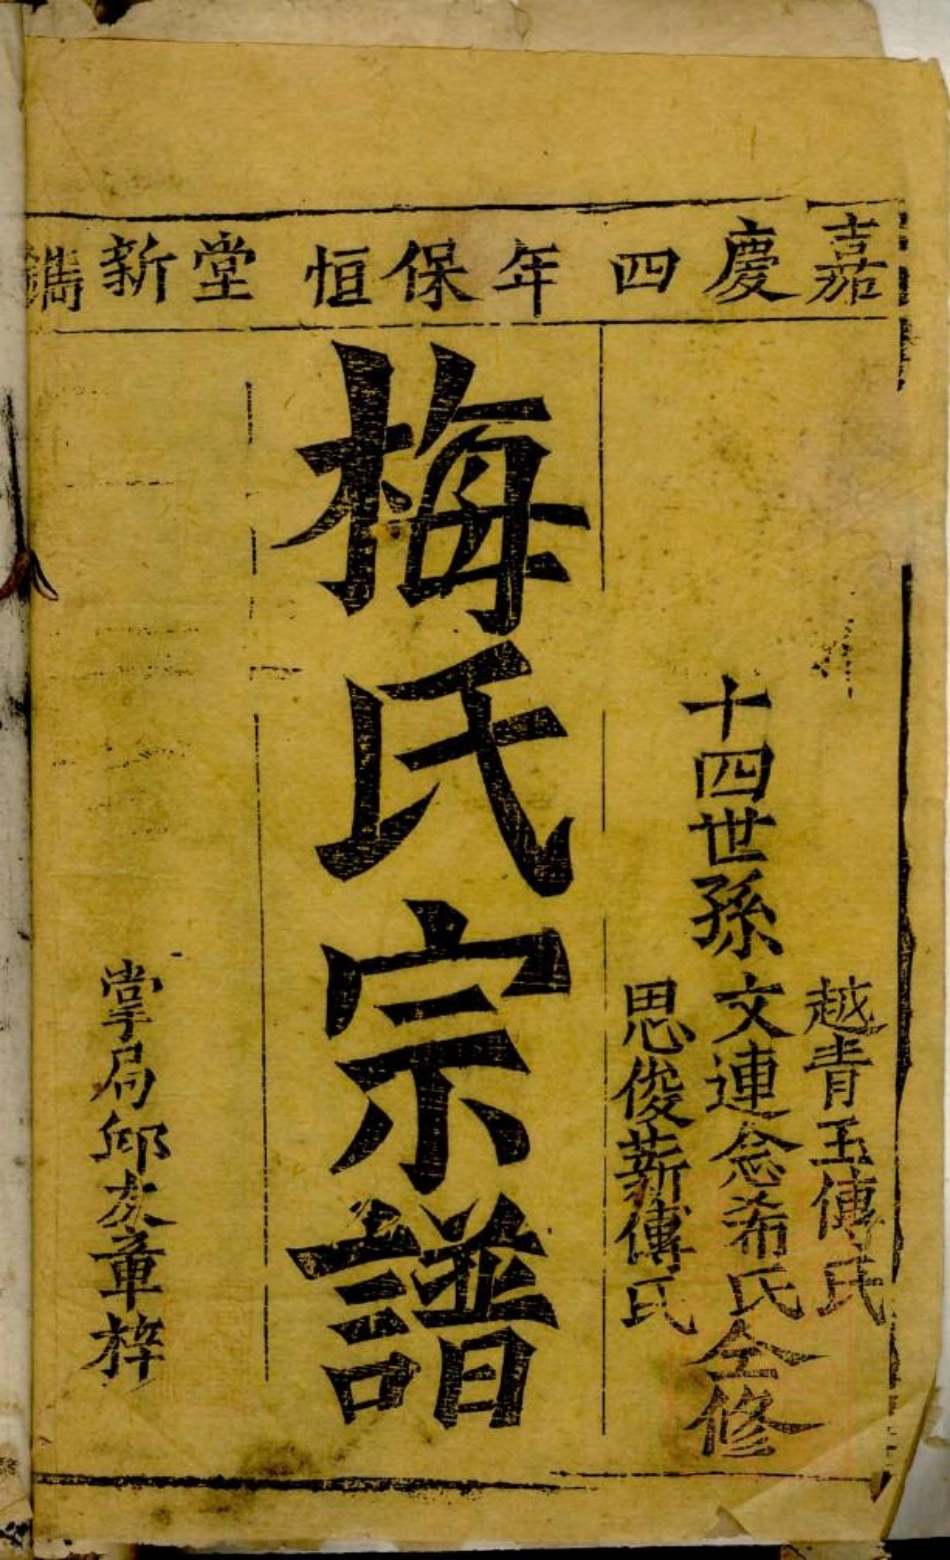 嘉慶四年保恒堂新鐫
越青玉傳氏
十四世孫文連念希氏仝修
思俊薪傳氏
梅氏宗譜
掌局邱友章梓